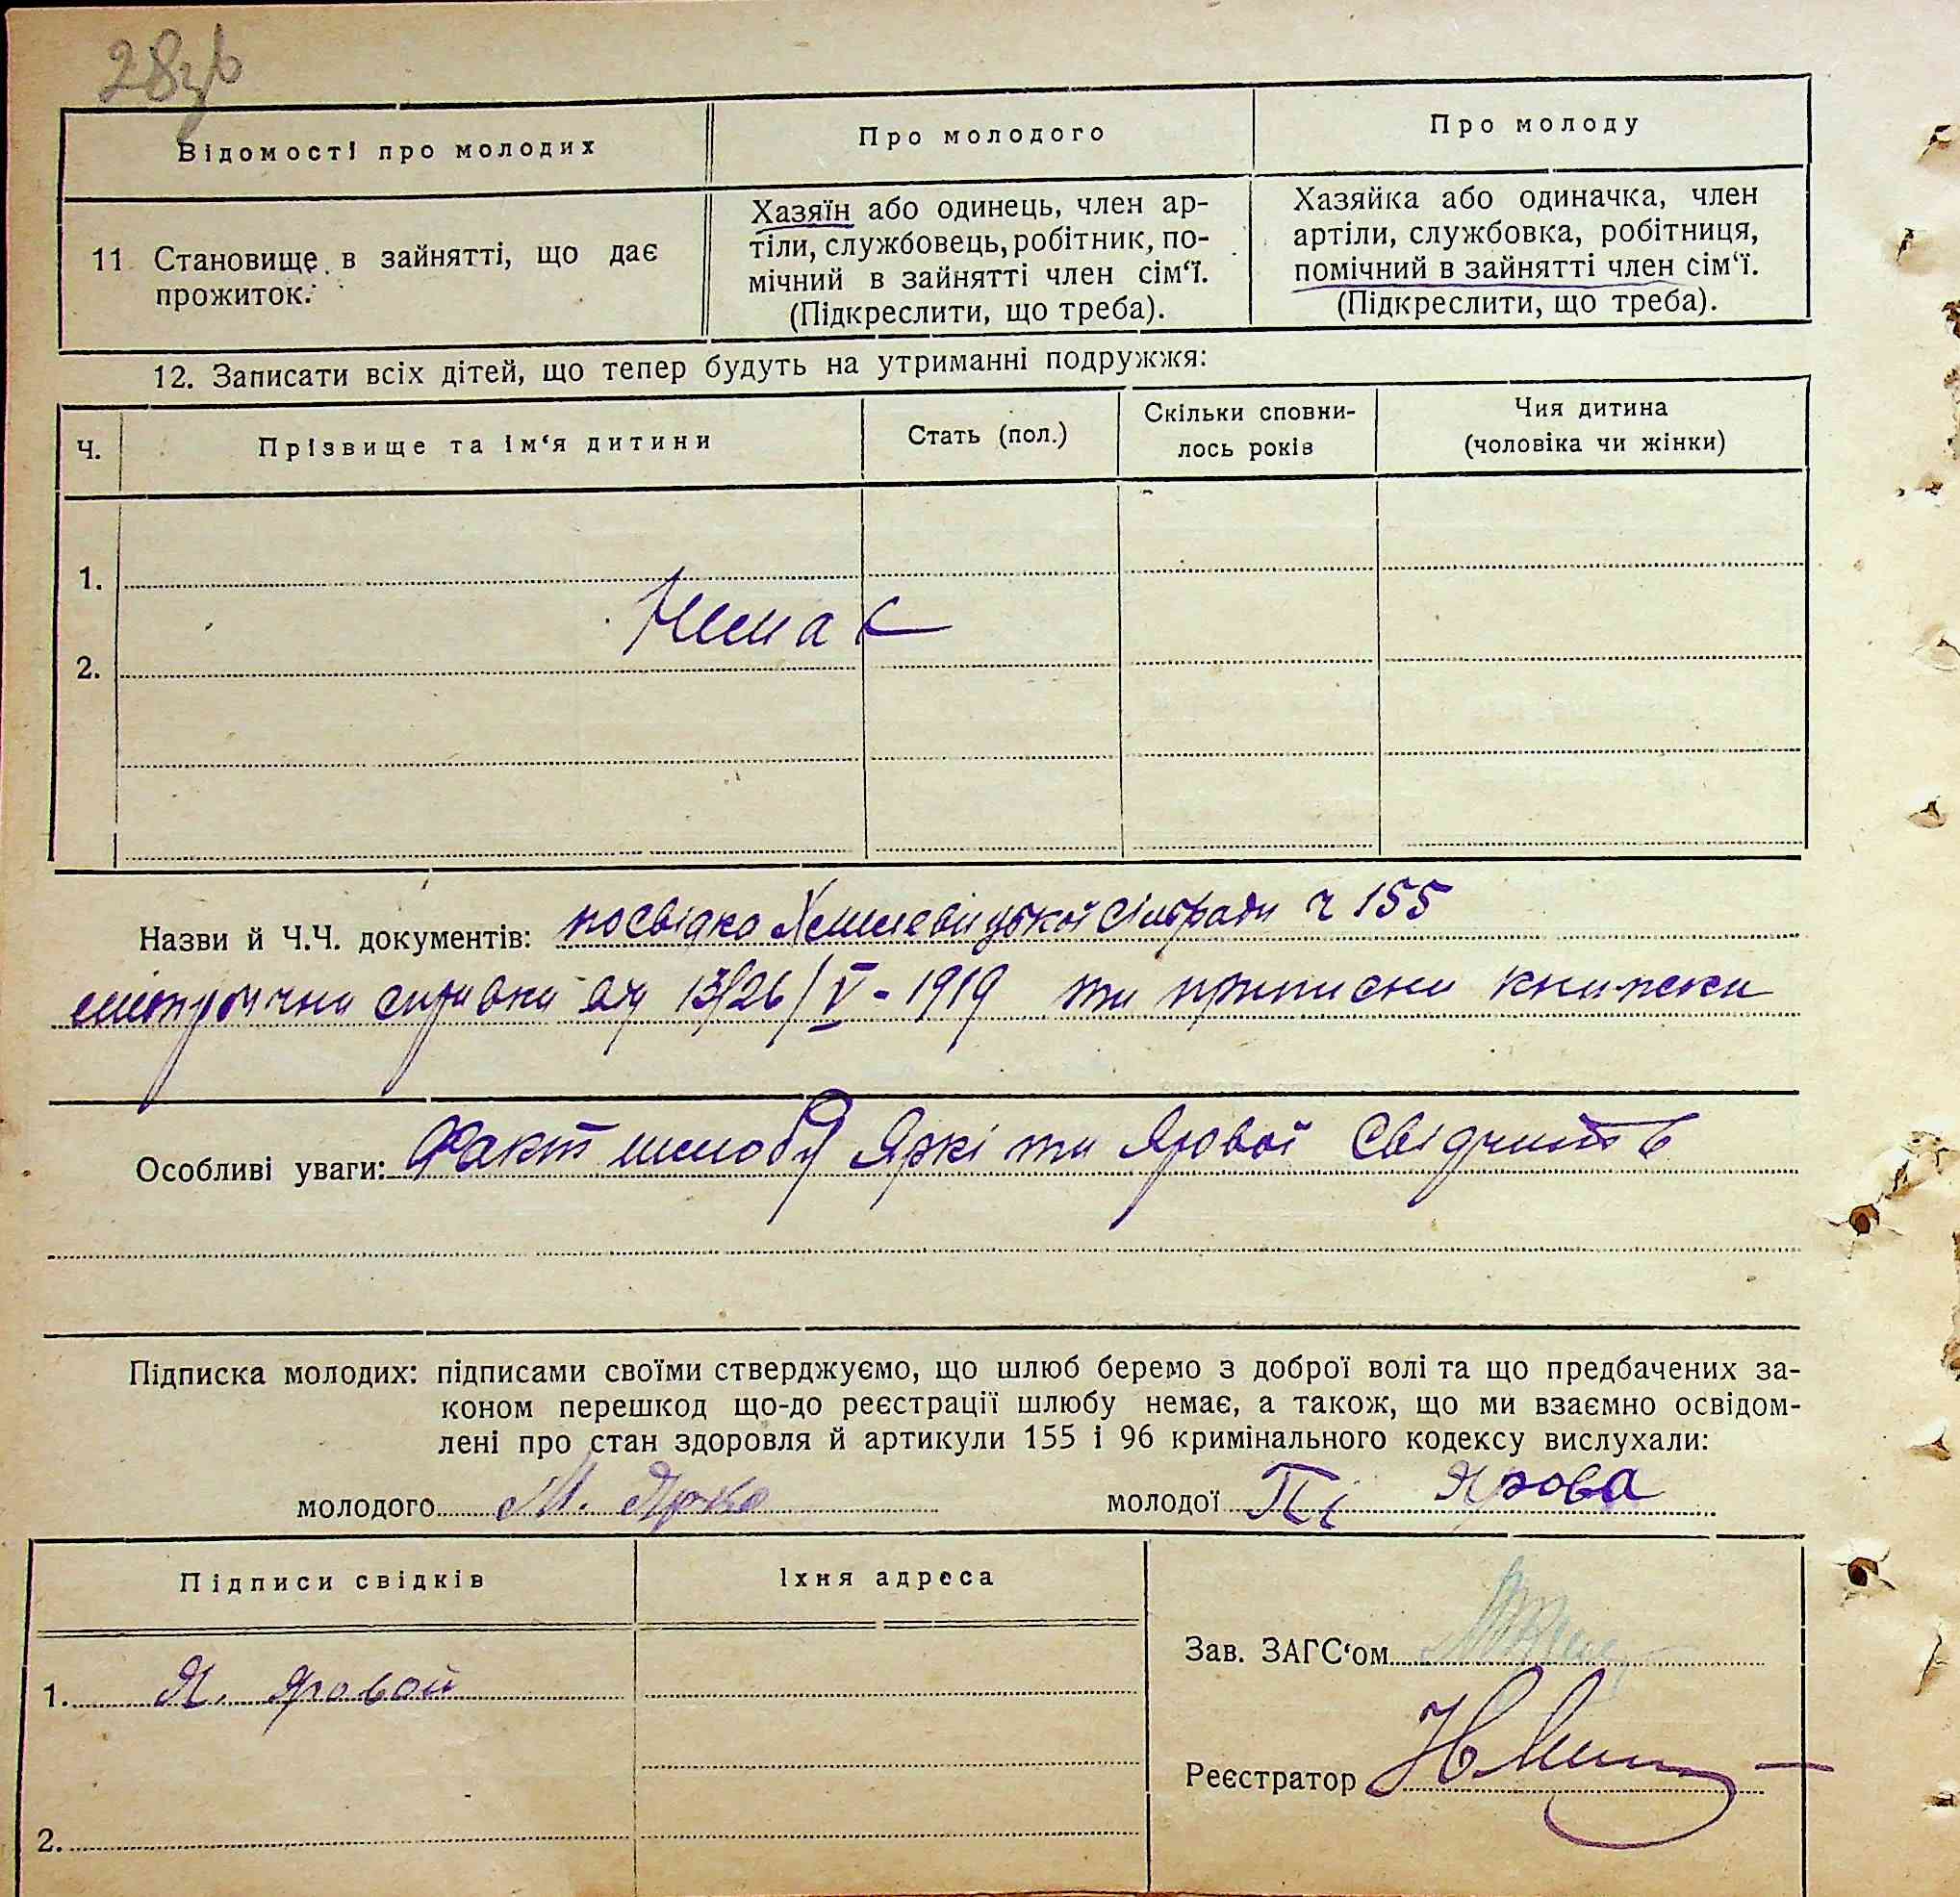 28зв
Відомості про молодих
Про молодого
Про молоду
11 Становище в зайнятті, що дає
прожиток.
Хазяїн або одинець, член ар-
тіли, службовець, робітник, по-
мічний в зайнятті член сім‘ї.
(Підкреслити, що треба).
Хазяйка або одиначка, член
артіли, службовка, робітниця,
помічний в зайнятті член сім‘ї.
(Підкреслити, що треба).
12. Записати всіх дітей, що тепер будуть на утриманні подружжя:
Ч.
Прізвище та ім‘я дитини
Стать (пол.)
Скільки сповни-
лось років
Чия дитина
(чоловіка чи жінки)
1.
Немає
2.
Назви й Ч.Ч. документів: посвідка сільради ч 155
метрична справка від 13/26/V-1919 та приписна книжека
Особливі уваги: Факт шлюбу Яркі та Ярової свідчить
Підписка молодих: підписами своїми стверджуємо, що шлюб беремо з доброї волі та що предбачених за-
коном перешкод що-до реєстрації шлюбу немає, а також, що ми взаємно освідом-
лені про стан здоровля й артикули 155 і 96 кримінального кодексу вислухали:
молодого М. Ярка молодої Ярова
Підписи свідків
Їхня адреса
Зав. ЗАГС‘ом
1. Я. Яровой
Реєстратор
2.